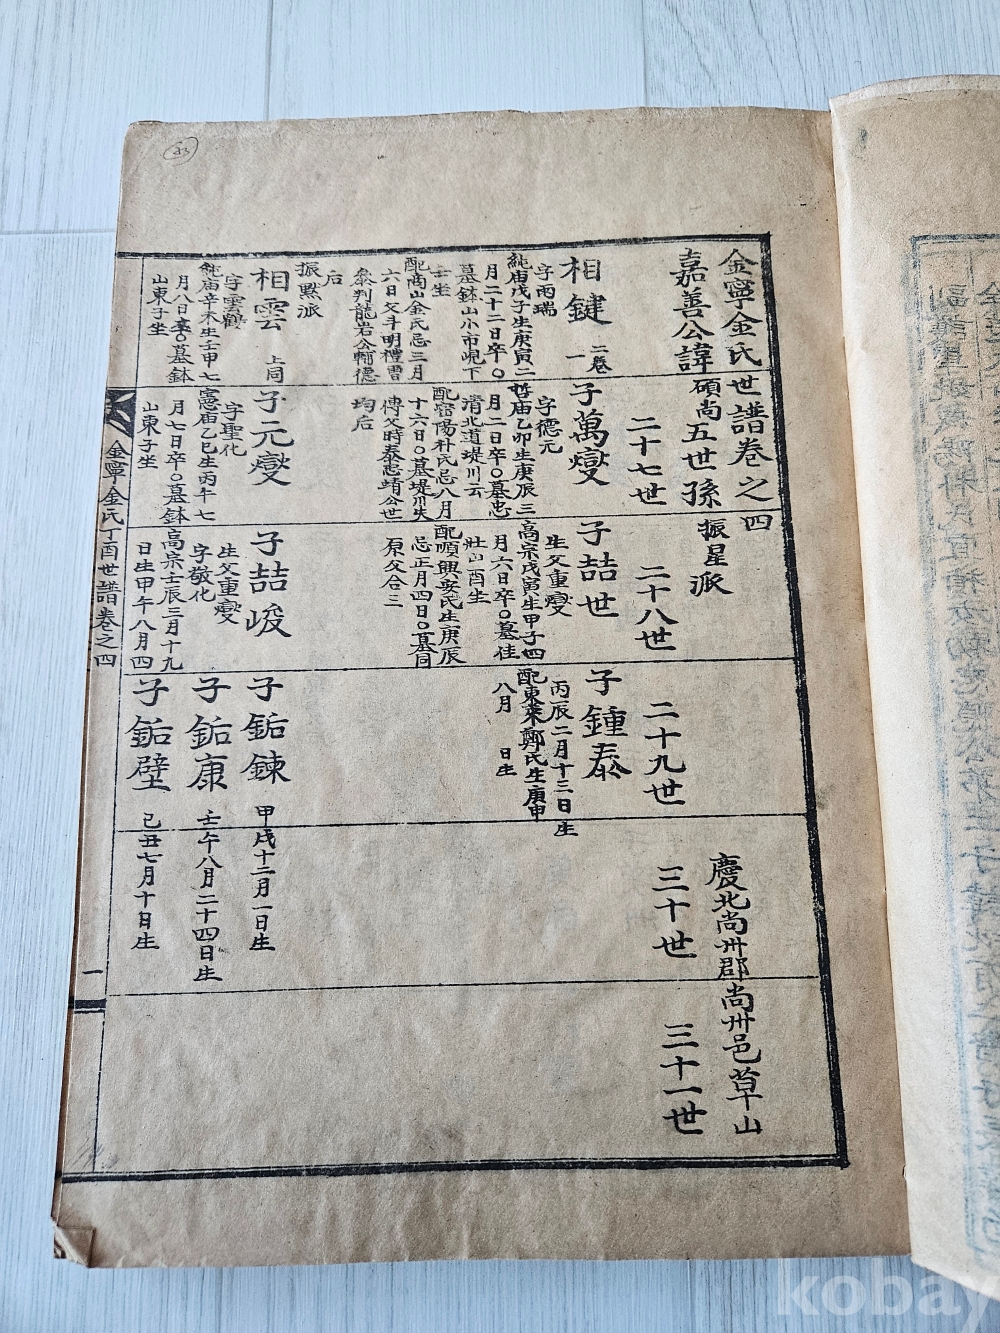 23
金寧金氏世譜卷之四
嘉善公諱碩尚五世孫 振星派
慶北尚州郡尚州邑草山
二十七世
二十八世
二十九世
三十世
三十一世
相鍵 二卷一
字雨瑞
純庙戊子生庚寅二
月二十二日卒〇
墓鉢山小市峴下
壬坐
配商山金氏忌三月
六日父斗明禮曹
叅判龍岩公輔德
后
子萬燮
字德元
哲庙乙卯生庚辰三
月二日卒〇墓忠
清北道堤川云
配密陽朴氏忌八月
十六日〇墓堤川失
傳父時泰忠靖公世
均后
子喆世
生父重燮
高宗戊寅生甲子四
月六日卒〇墓佳
壯山酉坐
配順興安氏生庚辰
忌正月四日〇墓同
原父合三
子鍾泰
丙辰二月十三日生
配東萊鄭氏生庚申
八月 日生
振默派
相雲 上同
字雲鶴
純庙辛未生壬申七
月八日卒〇墓鉢
山東子坐
子元燮
字聖化
憲庙乙巳生丙午七
月七日卒〇墓鉢
山東子坐
子喆峻
生父重燮
字敬化
高宗壬辰三月十九
日生甲午八月四
子鉐鍊 甲戌十二月一日生
子鉐康 壬午八月二十四日生
子鉐壁 己丑七月十日生
金寧金氏丁酉世譜卷之四
一
kobay